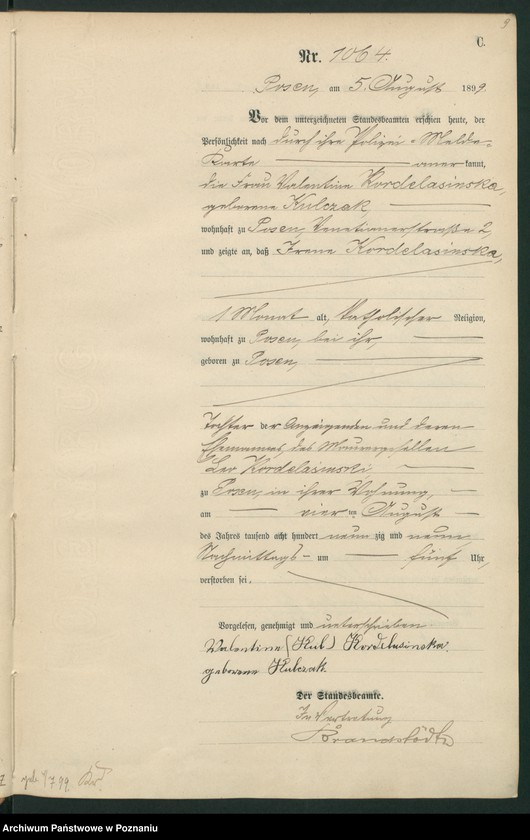 9
C.
Nr. 1064.
Posen, am 5. August 1899.
Vor dem unterzeichneten Standesbeamten erschien heute, der
Persönlichkeit nach durch ihre Polizei-Melde-
Karte anerkannt,
die Frau Valentine Kordelasinska,
geborene Kulczak,
wohnhaft zu Posen, Venetianerstraße 2,
und zeigte an, daß Irene Kordelasinska,
1 Monat alt, katholischer Religion,
wohnhaft zu Posen, bei ihr,
geboren zu Posen,
Tochter der Anzeigenden und deren
Ehemannes, des Maurergesellen
Leo Kordelasinski
zu Posen, in ihrer Wohnung,
am vier ten August
des Jahres tausend acht hundert neunzig und neun
Nachmittags um fünf Uhr,
verstorben sei.
Vorgelesen, genehmigt und unterschrieben
Valentine (Kul) Kordelasinska.
geborene Kulczak
Der Standesbeamte.
In Vertretung
geb. 7 99.
Archiwum Państwowe w Poznaniu